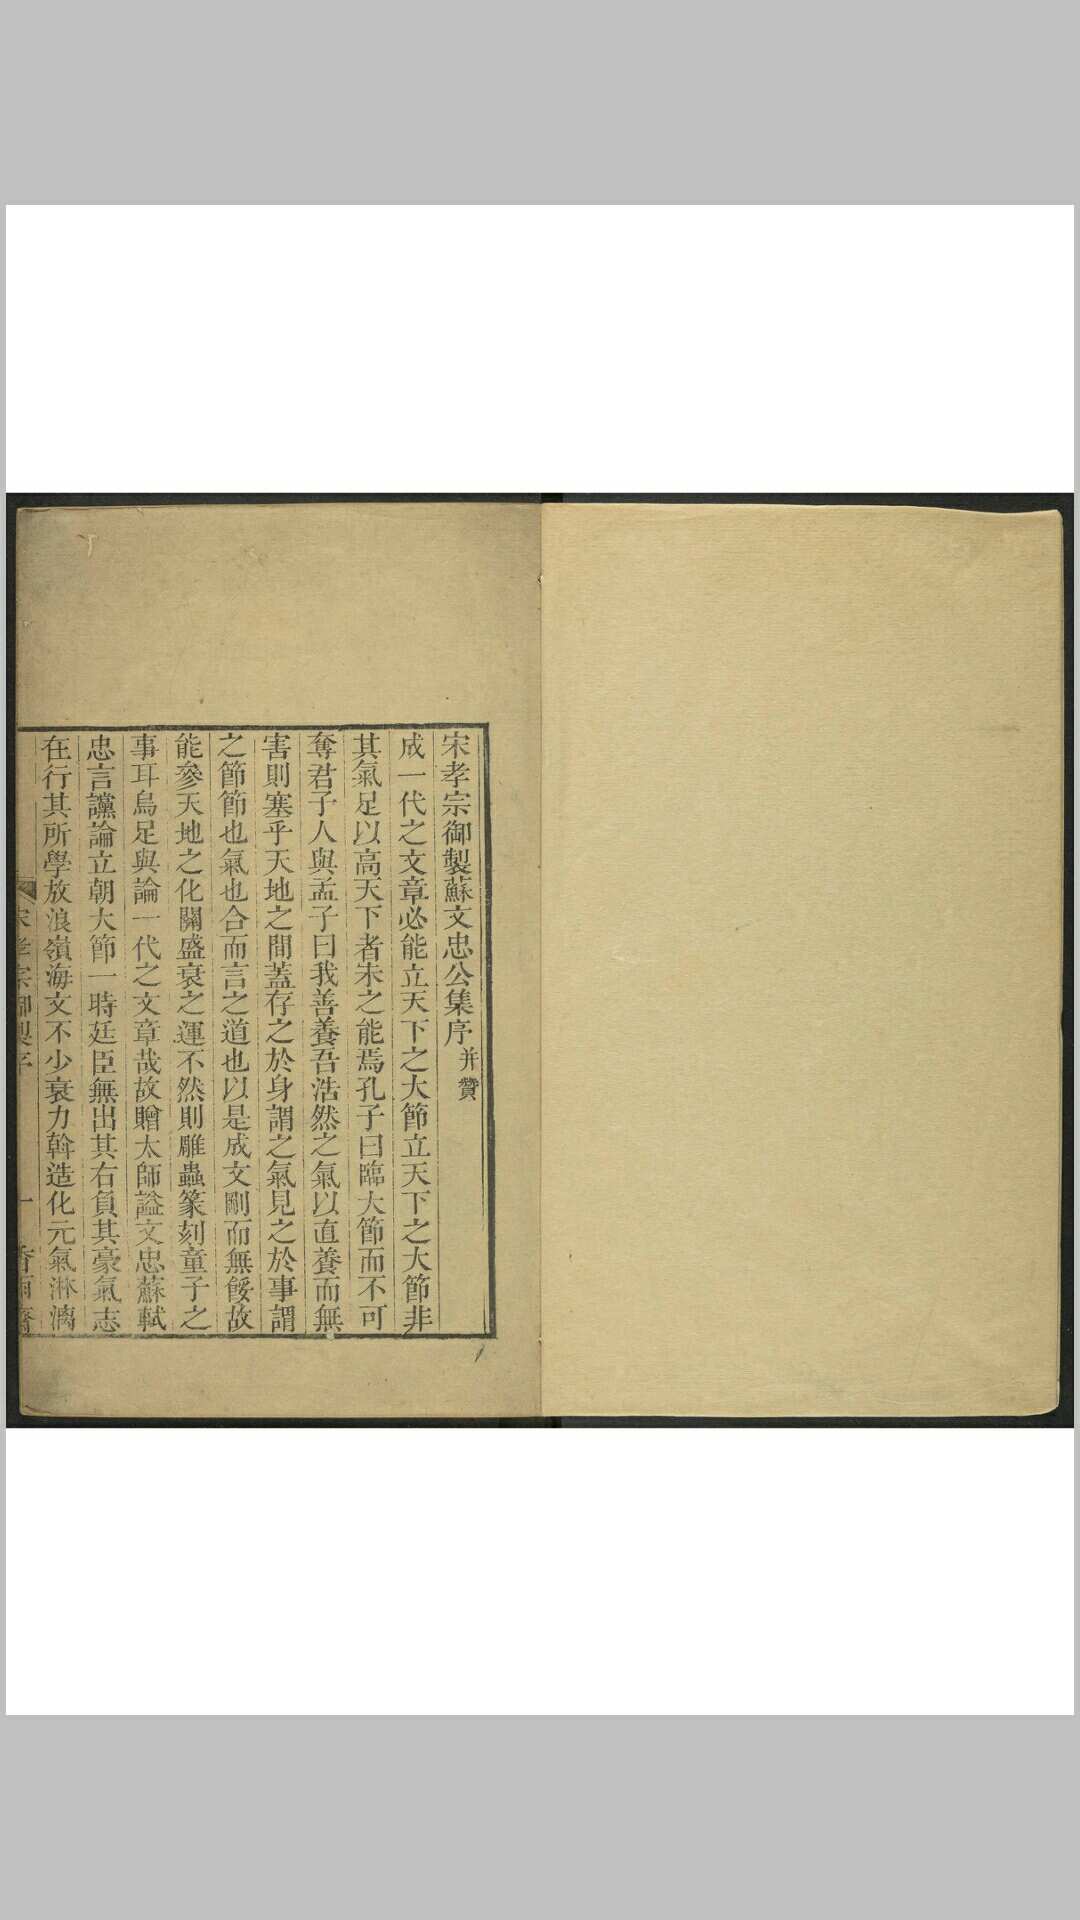 宋孝宗御製蘇文忠公集序并贊
成一代之文章必能立天下之大節立天下之大節非
其氣足以高天下者未之能焉孔子曰臨大節而不可
奪君子人與孟子曰我善養吾浩然之氣以直養而無
害則塞乎天地之間蓋存之於身謂之氣見之於事謂
之節節也氣也合而言之道也以是成文剛而無餒故
能參天地之化關盛衰之運不然則雕蟲篆刻童子之
事耳烏足與論一代之文章哉故贈太師謚文忠蘇軾
忠言讜論立朝大節一時廷臣無出其右負其豪氣志
在行其所學放浪嶺海文不少衰力斡造化元氣淋漓
宋孝宗御製序 一